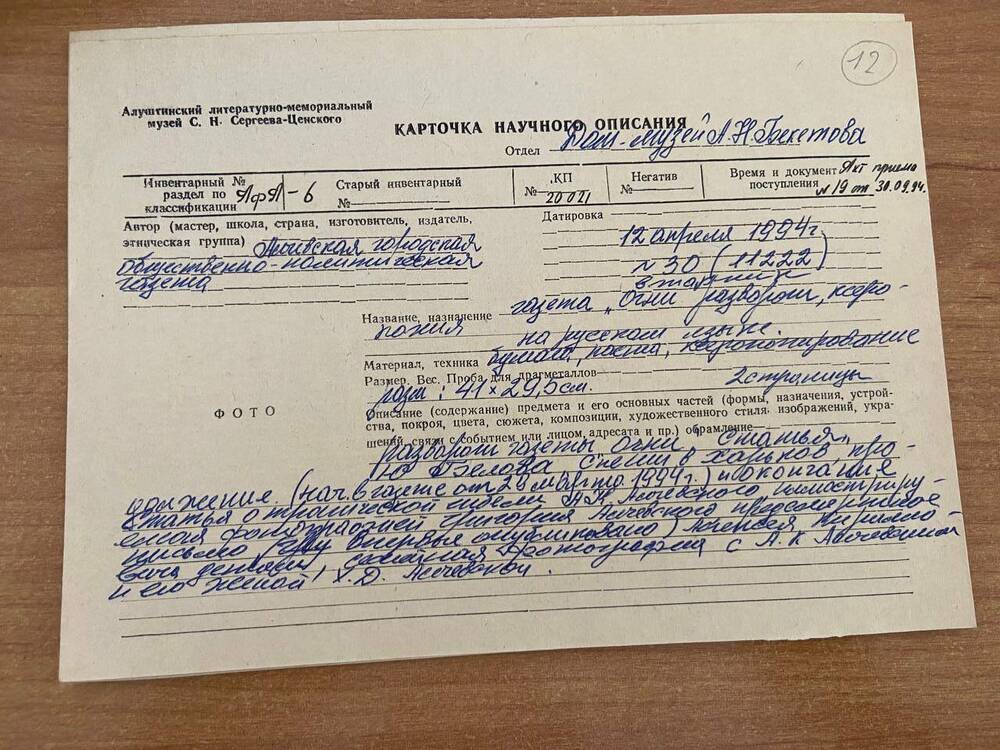 12
Алуштинский литературно-мемориальный
музей С. Н. Сергеева-Ценского
КАРТОЧКА НАУЧНОГО ОПИСАНИЯ
Отдел Дом-музей А.Н.Бекетова
Инвентарный №
раздел по
классификации АфА-6
Старый инвентарный
№
КП
№ 20021
Негатив
№
Время и документ Акт приема
поступления №19 от 30.09.94.
Автор (мастер, школа, страна, изготовитель, издатель,
этническая группа) городская
общественно-политическая
газета
Датировка
12 апреля 1994г.
№30 (11222)
вторник
Название, назначение газета "Огни разворот, ксеро-
копия на русском языке.
Материал, техника бумага, паста, ксерокопирование
Размер. Вес. Проба для драгметаллов
разм: 41×29,5см. 2 страницы
Описание (содержание) предмета и его основных частей (формы, назначения, устрой-
ства, покроя, цвета, сюжета, композиции, художественного стиля, изображений, укра-
шений, связи с событием или лицом, адресата и пр.) обрамление
разворот газеты "Огни". Статья
Ю. Белова в Харьков про-
должение. (нач. в газете от 28 марта 1994г.) и окончание
Статья о трагической гибели Алчевского иллюстриру-
емая фотографией Григория Алчевского предсмертное
письмо впервые опубликовано) Алексея Кирилло-
вича семейная фотография с А.К Алчевским
и его женой Х.Д. Алчевской.
ФОТО